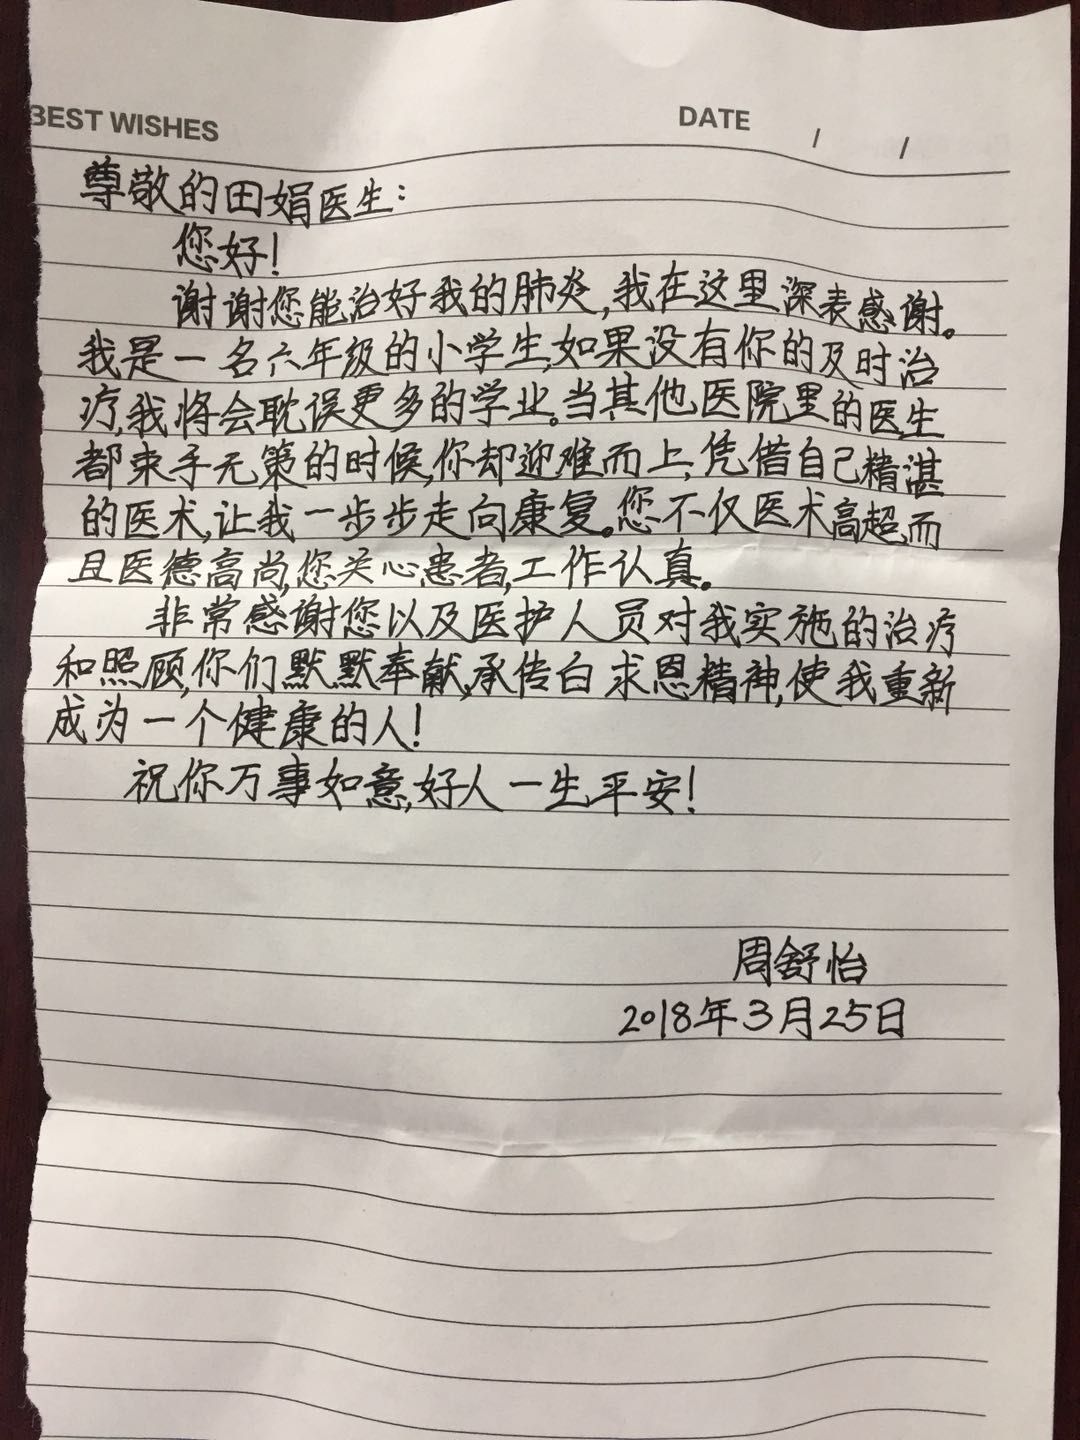 BEST WISHES
DATE / /
尊敬的田娟医生：
您好！
谢谢您能治好我的肺炎，我在这里深表感谢。
我是一名六年级的小学生，如果没有你的及时治
疗，我将会耽误更多的学业。当其他医院里的医生
都束手无策的时候，你却迎难而上，凭借自己精湛
的医术，让我一步步走向康复。您不仅医术高超，而
且医德高尚，您关心患者，工作认真。
非常感谢您以及医护人员对我实施的治疗
和照顾，你们默默奉献，承传白求恩精神，使我重新
成为一个健康的人！
祝你万事如意，好人一生平安！
周舒怡
2018年3月25日